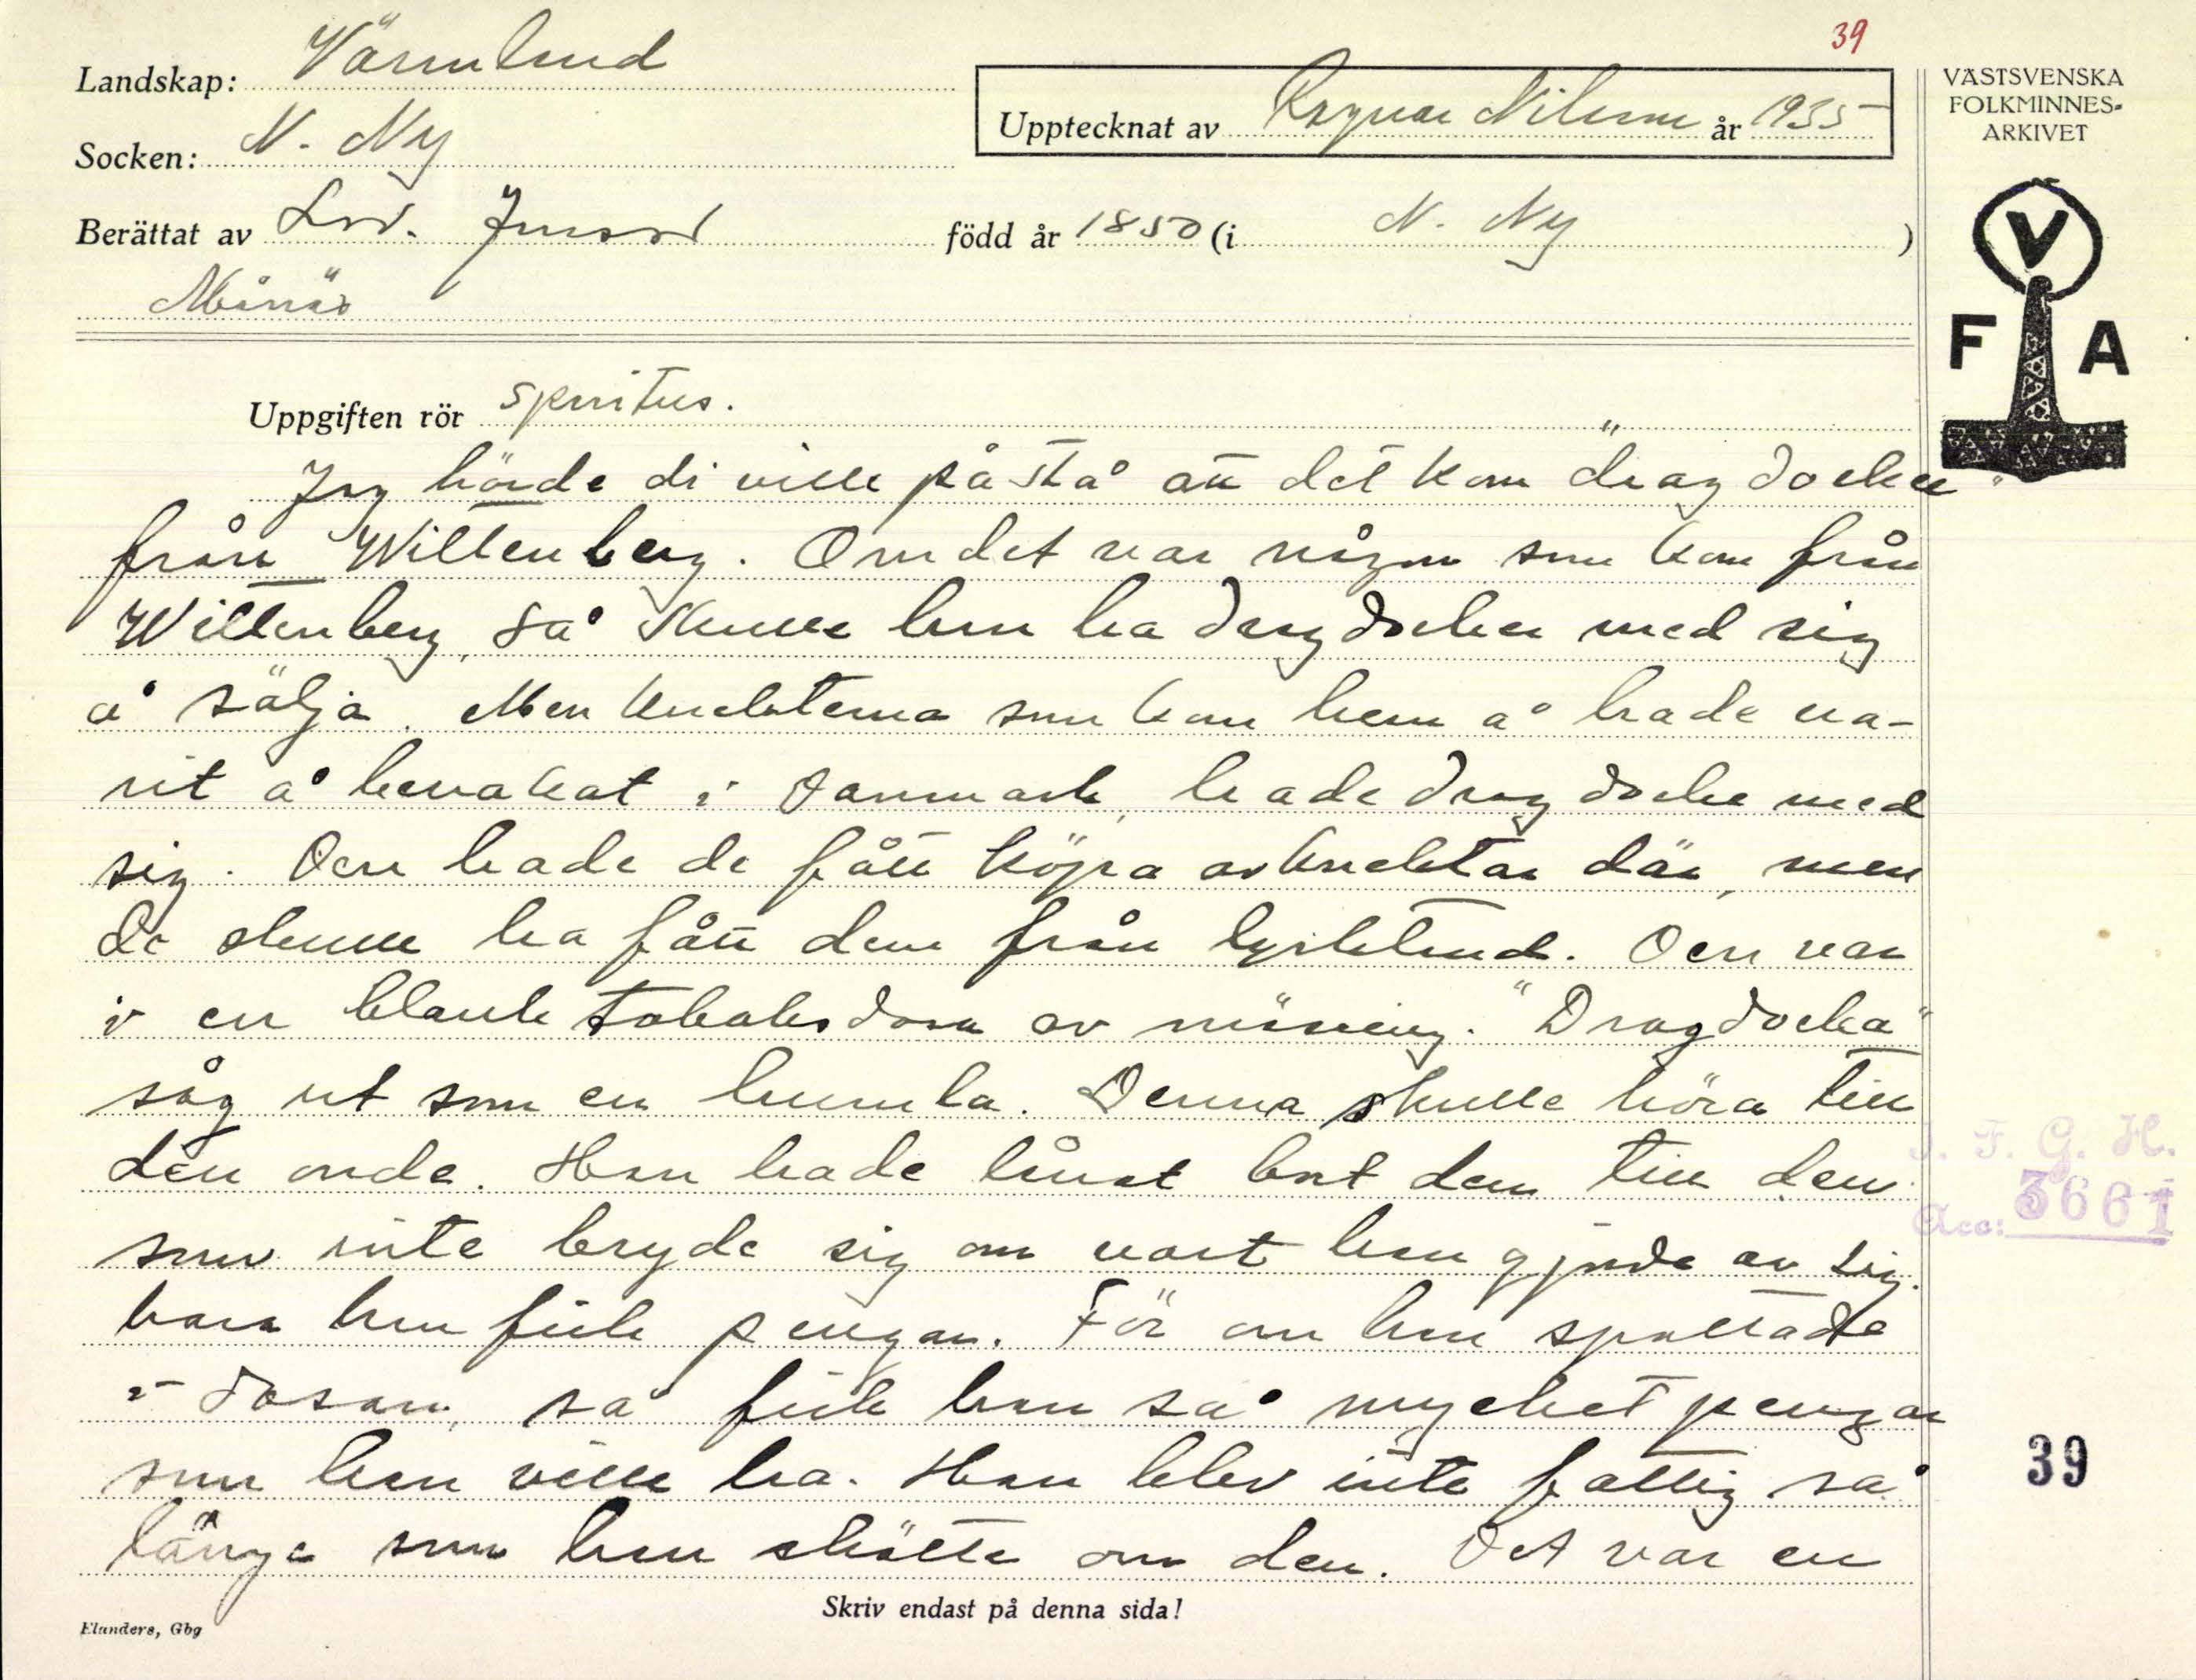 39
Landskap: Värmland
Upptecknat av Ragnar Nilsson år 1935
VÄSTSVENSKA
FOLKMINNES-
ARKIVET
Socken: N. Ny
Berättat av Jonsson född år 1850 (i N. Ny )
V
F A
Uppgiften rör spiritus.
Jag hörde di ville påstå att det kom "dragdocker"
från Wittenberg. Om det var någon som kom från
Wittenberg, så skulle han ha dragdocker med sig
å sälja. Men knekterna som kom hem å hade va-
rit å bevakat i Danmark, hade dragdocka med
sig. Den hade de fått köpa av knektar där, men
de skulle ha fått dem från Tyskland. Den var
i en blank tobaksdosa av mässing. "Dragdocka"
såg ut som en humla. Denna skulle höra till
den onde. Han hade lånat bort dem till den
som inte brydde sig om vart han gjorde av sig,
bara han fick pengar. För om han spottade
i dosan, så fick han så mycket pengar
som han ville ha. Han blev inte fattig så
länge som han skötte om den. Det var en
Skriv endast på denna sida!
Elanders, Gbg
I. F. G. H.
Acc: 3661
39